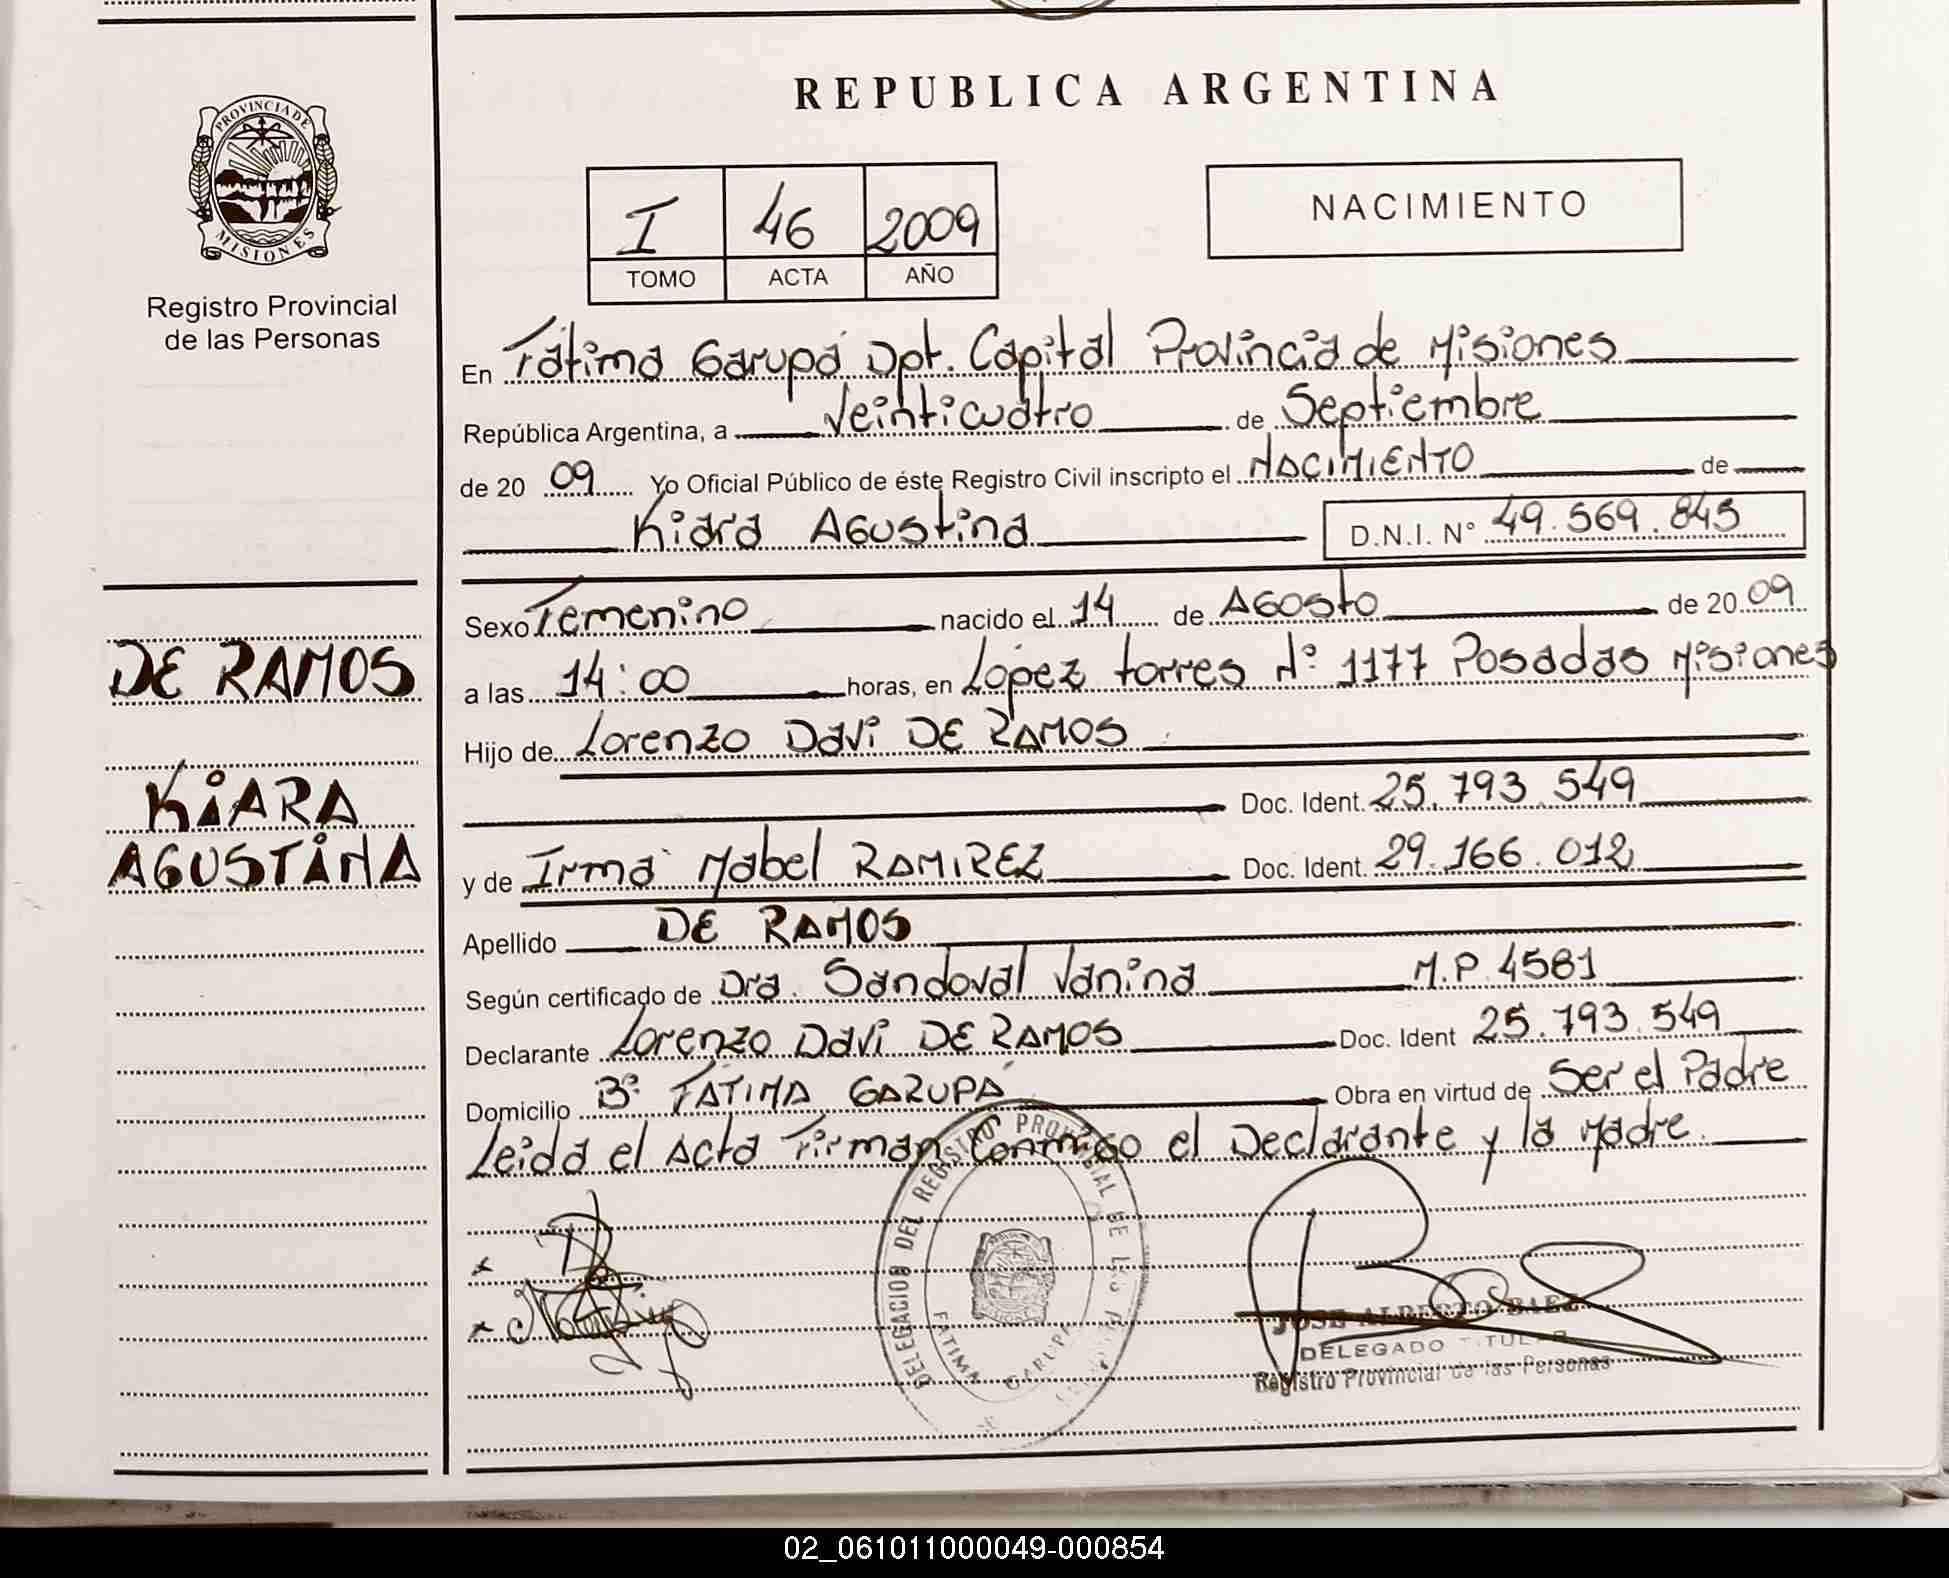 PROVINCIA DE
MISIONES
Registro Provincial
de las Personas
DE RAMOS
KIARA
AGUSTINA
REPUBLICA ARGENTINA
I 46 2009
TOMO ACTA AÑO
NACIMIENTO
En Fátima Garupá Dpt. Capital Provincia de Misiones
República Argentina, a veinticuatro de Septiembre
de 20 09 Yo Oficial Público de éste Registro Civil inscripto el NACIMIENTO de
Kiara Agustina D.N.I. N° 49.569.845
Sexo Femenino nacido el 14 de Agosto de 20 09
a las 14:00 horas, en López torres N° 1177 Posadas Misiones
Hijo de Lorenzo Davi DE RAMOS
Doc. Ident. 25.793.549
y de Irma Mabel RAMIREZ Doc. Ident. 29.166.012
Apellido DE RAMOS
Según certificado de Dra. Sandoval Vanina M.P 4581
Declarante Lorenzo Davi DE RAMOS Doc. Ident 25.793.549
Domicilio B° FÁTIMA GARUPÁ Obra en virtud de Ser el Padre
Leida el Acta Firman Conmigo el Declarante y la Madre.
DELEGACION DEL REGISTRO PROVINCIAL DE LAS
FATIMA GARUPA
JOSE ALBERTO BAEZ
DELEGADO TITULAR
Registro Provincial de las Personas
02_061011000049-000854